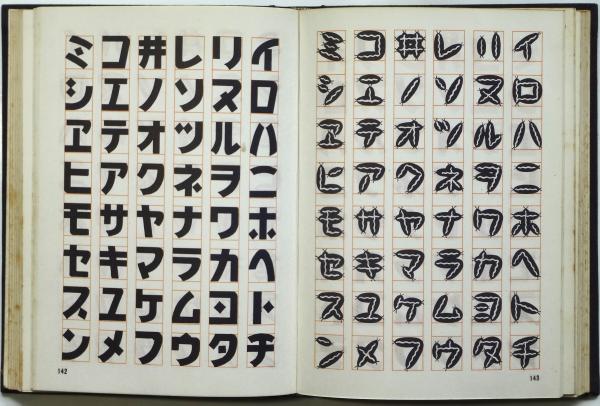 イロハニホヘトチ
リヌルヲワカヨタ
レソツネナラムウ
ヰノオクヤマケフ
コエテアサキユメ
ミシヱヒモセスン
142
イロハニホヘトチ
リヌルヲワカヨタ
レソツネナラムウ
ヰノオクヤマケフ
コエテアサキユメ
ミシヱヒモセスン
143